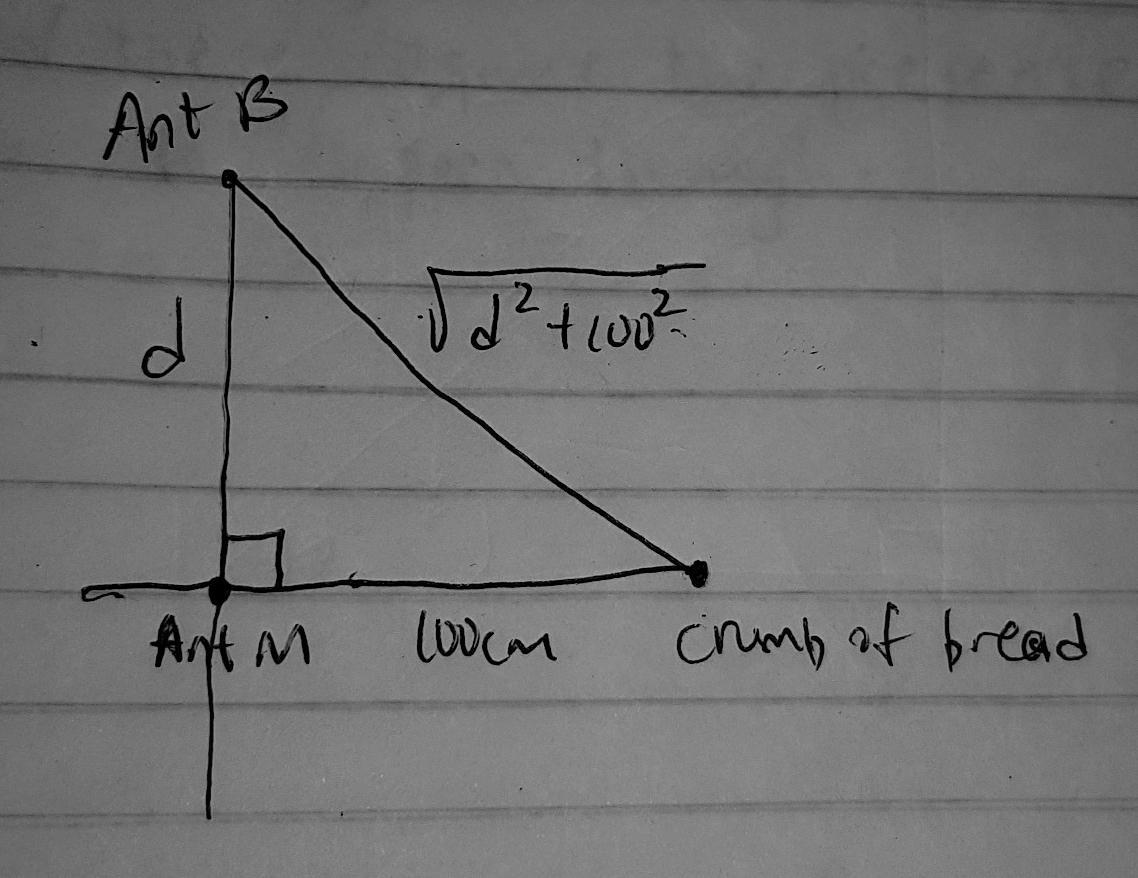 Ant B
d
√d²+100²
Ant M 100cm crumb of bread